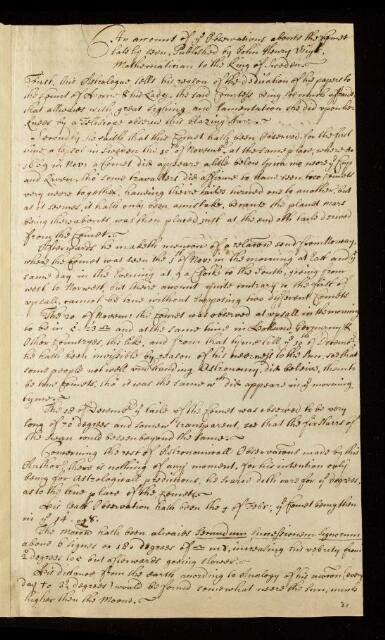 An account of yͤ Observations abouts the Comet
lately seen, Published by John Henry Voigt
Mathematician to the King of Sweden.
First, this Astrologue tells his reason of the dedication of his papers to
the Count of & his Lady, the said Countess being so much affraid
that allwaies with great sighing and lamentation she did upon her
knees by a observe this blazing starr.
Secondly, he saith that this Comet hath been observed for the first
time a in Sweeden the of Novemb. at the same place, where Aͦ
1609 in Nov. a Comet did appeare a little below Spica
and Queen, thoͧ some travellers did affirme to have seen two Comets
very neere together, haveing theire tailes turned one to another, but
as it seemes, it hath only been a mistake, because the planet mars
being thereabouts, was then placed just at the end of the taile derived
from the Comet.
Afterwards he maketh mention of a relation send from Norway,
where the Comet was seen the of Nov. in the morning at East and yͤ
same day in the Evening at 9 a Clock to the South, goeing from
West to Norwest, but this account quite contrary to the of
upsall, cannot be true without supposing two different Comets
The 20. of Novemb. the Comet was observed at upsall in the morning
to be in 23 and at the same time in Holland, Germany &
Other Countryes, the like, and from that tyme till yͤ of Decemb.
he hath been invisible by reason of his neerness to the Sun, so that
some people not well understanding Astronomy, did beleive, them to
be two Comets, thoͧ it was the same wͨͪ did appeare in yͤ morning
tyme.
The 18 of Decemb. yͤ taile of the Comet was observed to be very
long of 70 degrees and somew.ᵗ transparent, so that the fix Starrs of
the Swan could be seen beyond the same.
Concerning the rest of Astronomicall Observations made by this
Author, there is nothing of any moment, for his intention only
being for Astrologicall preditions, he doth care for yͤ degrees,
as to the true place of the Comet.
his last Observation hath been the 9 of Febr. yͤ Comet being then
in
The Motion hath been allwaies Secundum Successionem Signorum
above 6 signes or 180 degrees of increasing his velocity from
degrees but afterwards goeing slower.
his distance from the earth according to Analogy of his motion (every
day to 3½ degrees) would be found somewhat neere the Sun, much
higher then the Moone.
21